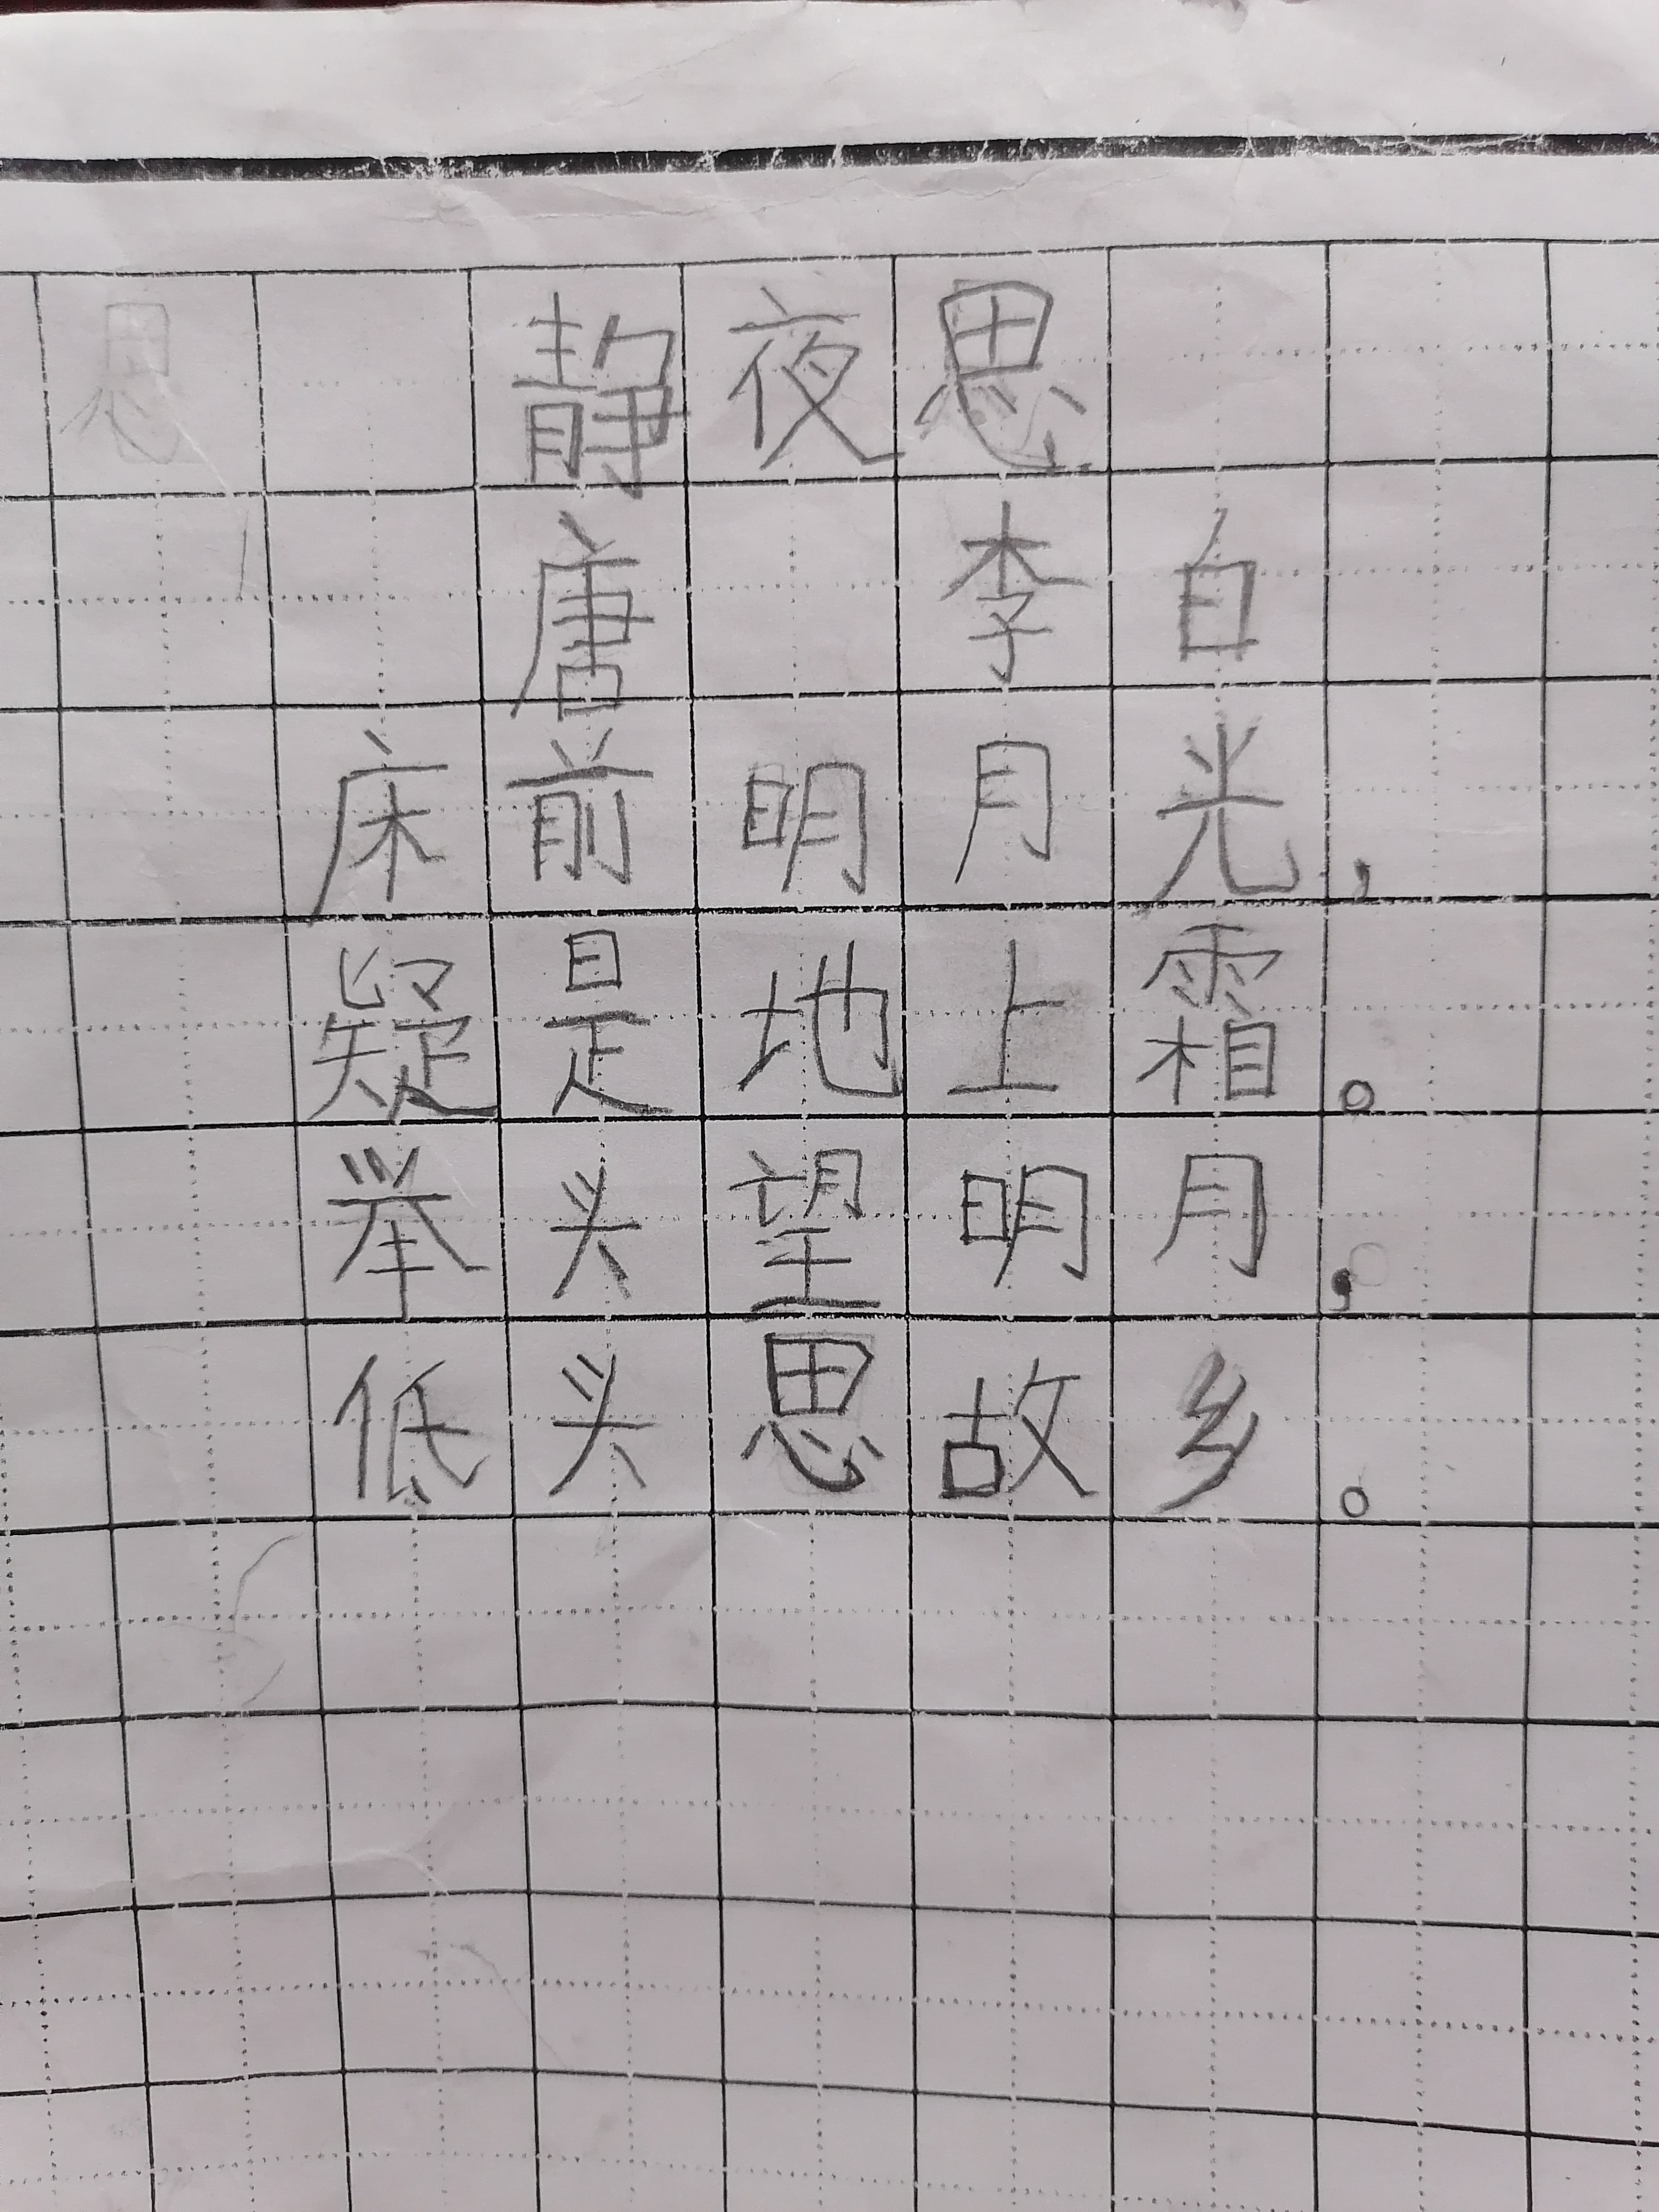 静夜思
唐 李白
床前明月光,
疑是地上霜。
举头望明月,
低头思故乡。